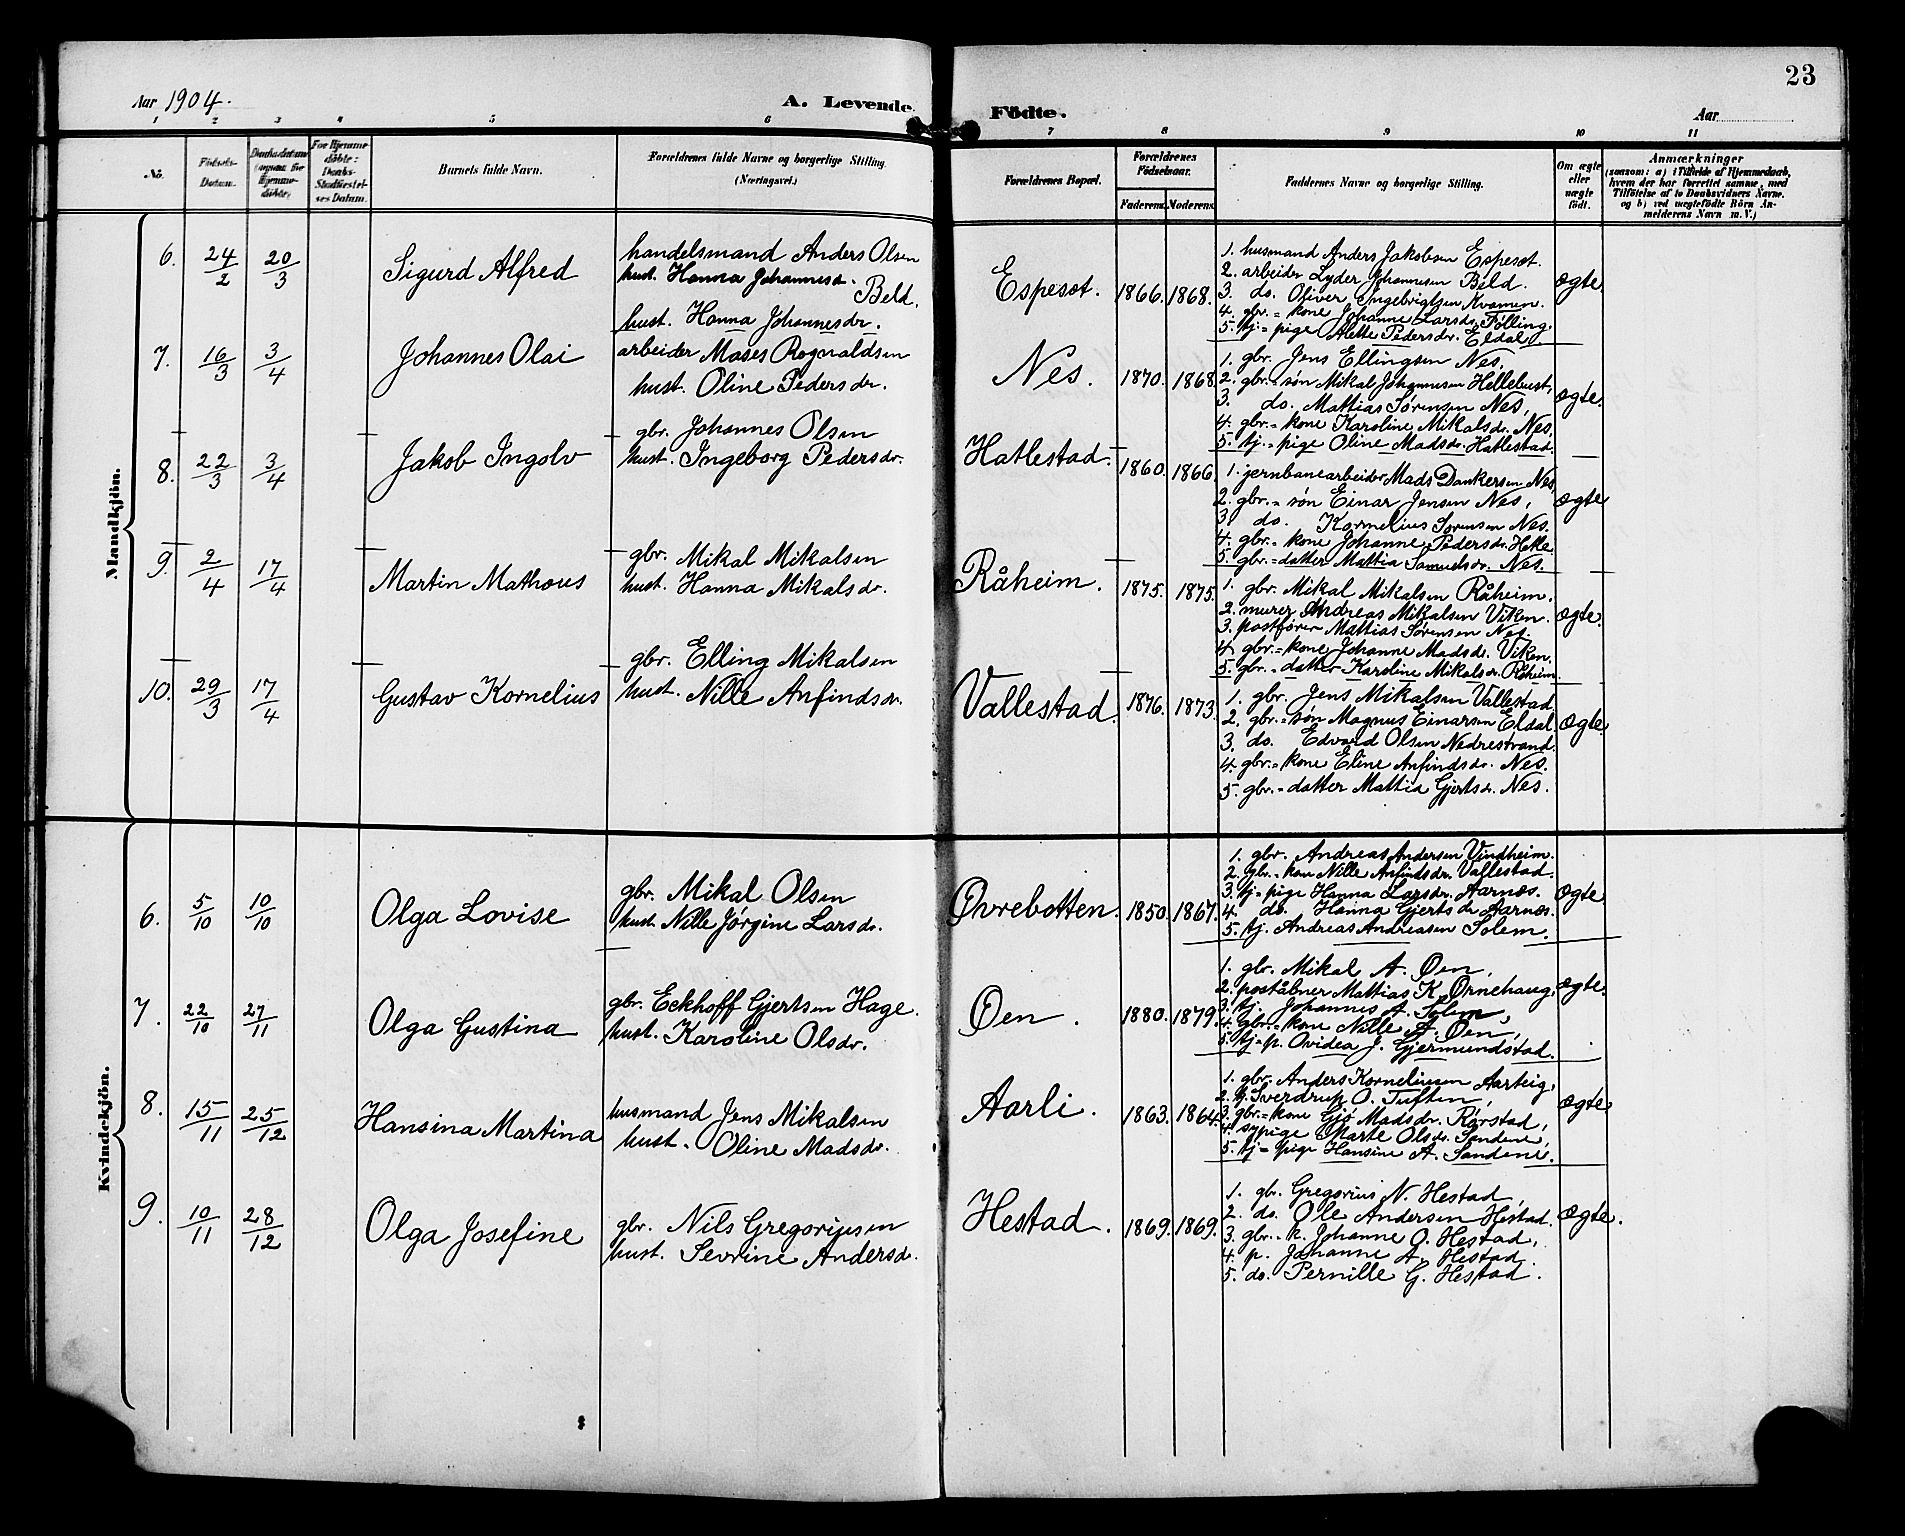 23
Aar 1904.
A. Levende Födte.
Aar
1 2 3 4 5 6 7 8 9 10 11
No.
Födsels-
Datum.
Barnets fulde Navn.
Forældrenes fulde Navne og borgerlige Stilling.
(Næringsvei.)
Forældrenes Bopæl.
Forældrenes
Födselsaar.
Faderens. Moderens.
Faddernes Navne og borgerlige Stilling.
Om ægte
eller
uægte
födt.
Anmærkninger
(saasom: a) i Tilfælde af Hjemmedaab,
hvem der har forrettet samme, med
Tilföielse af to Daabsvidners Navne.
og b) ved uægtefödte Börn An-
melderens Navn m. V.)
Mandkjön.
6. 24/2 20/3 Sigurd Alfred
handelsmand Anders Olsen
hust. Hanna Johannesd.
Beld.
hust. Hanna Johannesdr.
Espeset. 1866. 1868.
1. husmand Anders Jakobsen Espeset.
2. arbeider Lyder Johannesen Beld.
3. do. Oliver Ingebrigtsen Kvamen.
4. gbr.=kone Johanne Larsdr. Fölling.
5. tj.=pige Alette Pedersdr. Eldal.
ægte.
7. 16/3 3/4 Johannes Olai
arbeider Moses Rognaldsen
hust. Oline Pedersdr.
Nes. 1870. 1868.
1. gbr. Jens Ellingsen Nes,
2. gbr.=søn Mikal Johannesen Hellebust,
3. do. Mattias Sørensen Nes,
4. gbr.=kone Karoline Mikalsdr. Nes.
5. tj.=pige Oline Madsdr. Hatlestad.
ægte.
8. 22/3 3/4 Jakob Ingolv
gbr. Johannes Olsen
hust. Ingeborg Pedersdr.
Hatlestad. 1860. 1866.
1. jernbanearbeider Mads Dankersen Nes,
2. gbr.=søn Einar Jensen Nes,
3. do. Kornelius Sørensen Nes.
4. gbr.=kone Johanne Pedersdr. Helle.
5. gbr.=datter Mattia Samuelsdr. Nes.
ægte
9. 2/4 17/4 Martin Mathæus
gbr. Mikal Mikalsen
hust. Hanna Mikalsdr.
Råheim. 1875. 1875.
1. gbr. Mikal Mikalsen Råheim.
2. murer Andreas Mikalsen Viken.
3. postfører Mattias Sørensen Nes.
4. gbr.=kone Johanne Madsdr. Viken.
5. gbr.=datter Karoline Mikalsdr. Råheim.
ægte.
10. 29/3 17/4 Gustav Kornelius
gbr. Elling Mikalsen
hust. Nille Anfindsdr.
Vallestad. 1876. 1873.
1. gbr. Jens Mikalsen Vallestad.
2. gbr.=søn Magnus Einarsen Eldal
3. do. Edvard Olsen Nedrestrand.
4. gbr.=kone Eline Anfindsdr. Nes.
5. gbr.=datter Mattia Gjertsdr. Nes.
ægte.
Kvindekjön.
6. 5/10 10/10 Olga Lovise
gbr. Mikal Olsen
hust. Nille Jørgine Larsdr.
Øvrebotten. 1850. 1867.
1. gbr. Andreas Andersen Vindheim.
2. gbr.=kone Nille Anfindsdr. Vallestad.
3. tj=pige Hanna Larsdr. Aarnæs.
4. do. Hanna Gjertsdr Aarnæs.
5. tj. Andreas Andreasen Solem.
ægte
7. 22/10 27/11 Olga Gustina
gbr. Eckhoff Gjertsen Hage.
hust. Karoline Olsdr.
Øen. 1880. 1879.
1. gbr. Mikal A. Øen,
2. poståbner Mattias K. Ørnehaug,
3. tj. Johannes A. Solem,
4. gbr.=kone Nille A. Øen,
5. tj=p. Ovidea J. Gjermundstad.
ægte.
8. 15/11 25/12 Hansina Martina
husmand Jens Mikalsen
hust. Oline Madsdr.
Aarli. 1863. 1864.
1. gbr. Anders Korneliusen Aarteig,
2. Sverdrup O. Tuften,
3. gbr.=kone Gjø Madsdr. Rørstad,
4. sypige Marte Olsdr. Sandene,
5. tj=pige Hansine A. Sandene.
ægte
9. 10/11 28/12 Olga Josefine
gbr. Nils Gregoriusen
hust. Sevrine Andersdr.
Hestad. 1869. 1869.
1. gbr. Gregorius N. Hestad,
2. do. Ole Andersen Hestad.
3. gbr.=k. Johanne O. Hestad,
4. p. Johanne A. Hestad
5. do. Pernille G. Hestad.
ægte.